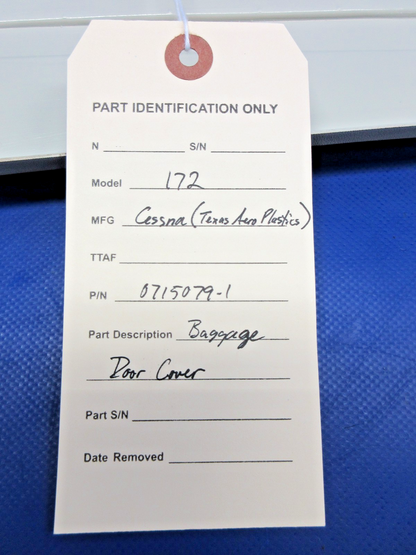 PART IDENTIFICATION ONLY
N S/N
Model 172
MFG Cessna (Texas Aero Plastics)
TTAF
P/N 0715079-1
Part Description Baggage
Door Cover
Part S/N
Date Removed